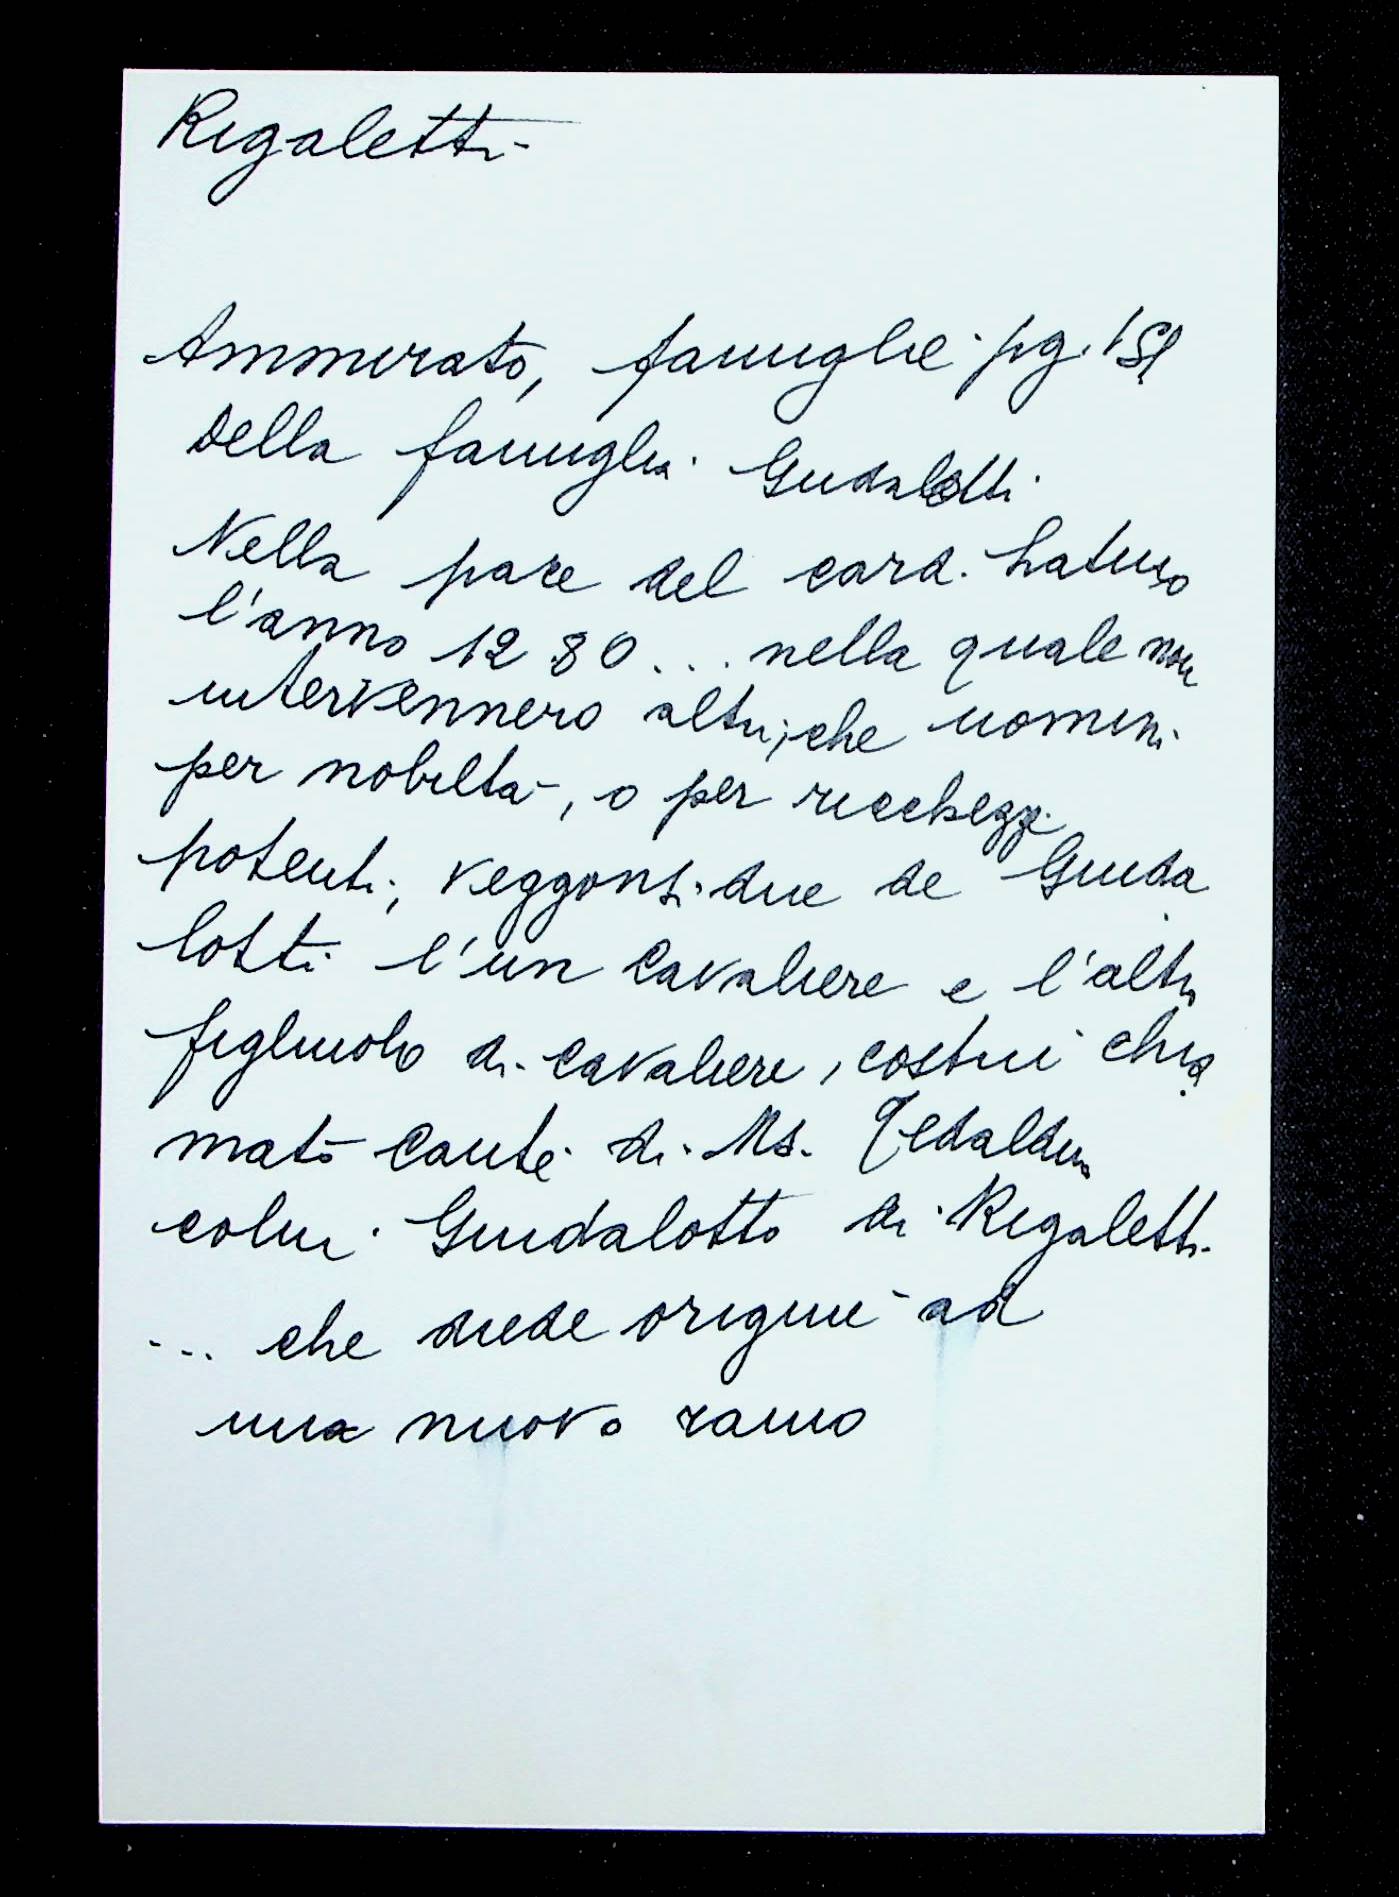 Rigaletti
Ammirato, famiglie pg.
Della famiglia Guidalotti
Nella pace del card. Latino
l'anno 1280 ... nella quale non
intervennero altri, che uomini
per nobiltà, o per ricchezze
potenti, veggonsi due de Guida
lotti l'un Cavaliere e l'altro
figliuolo di Cavaliere, costui chia
mato Cante di Ms. Tedaldino
colui Guidalotto di Rigaletti
... che diede origine ad
una nuovo ramo